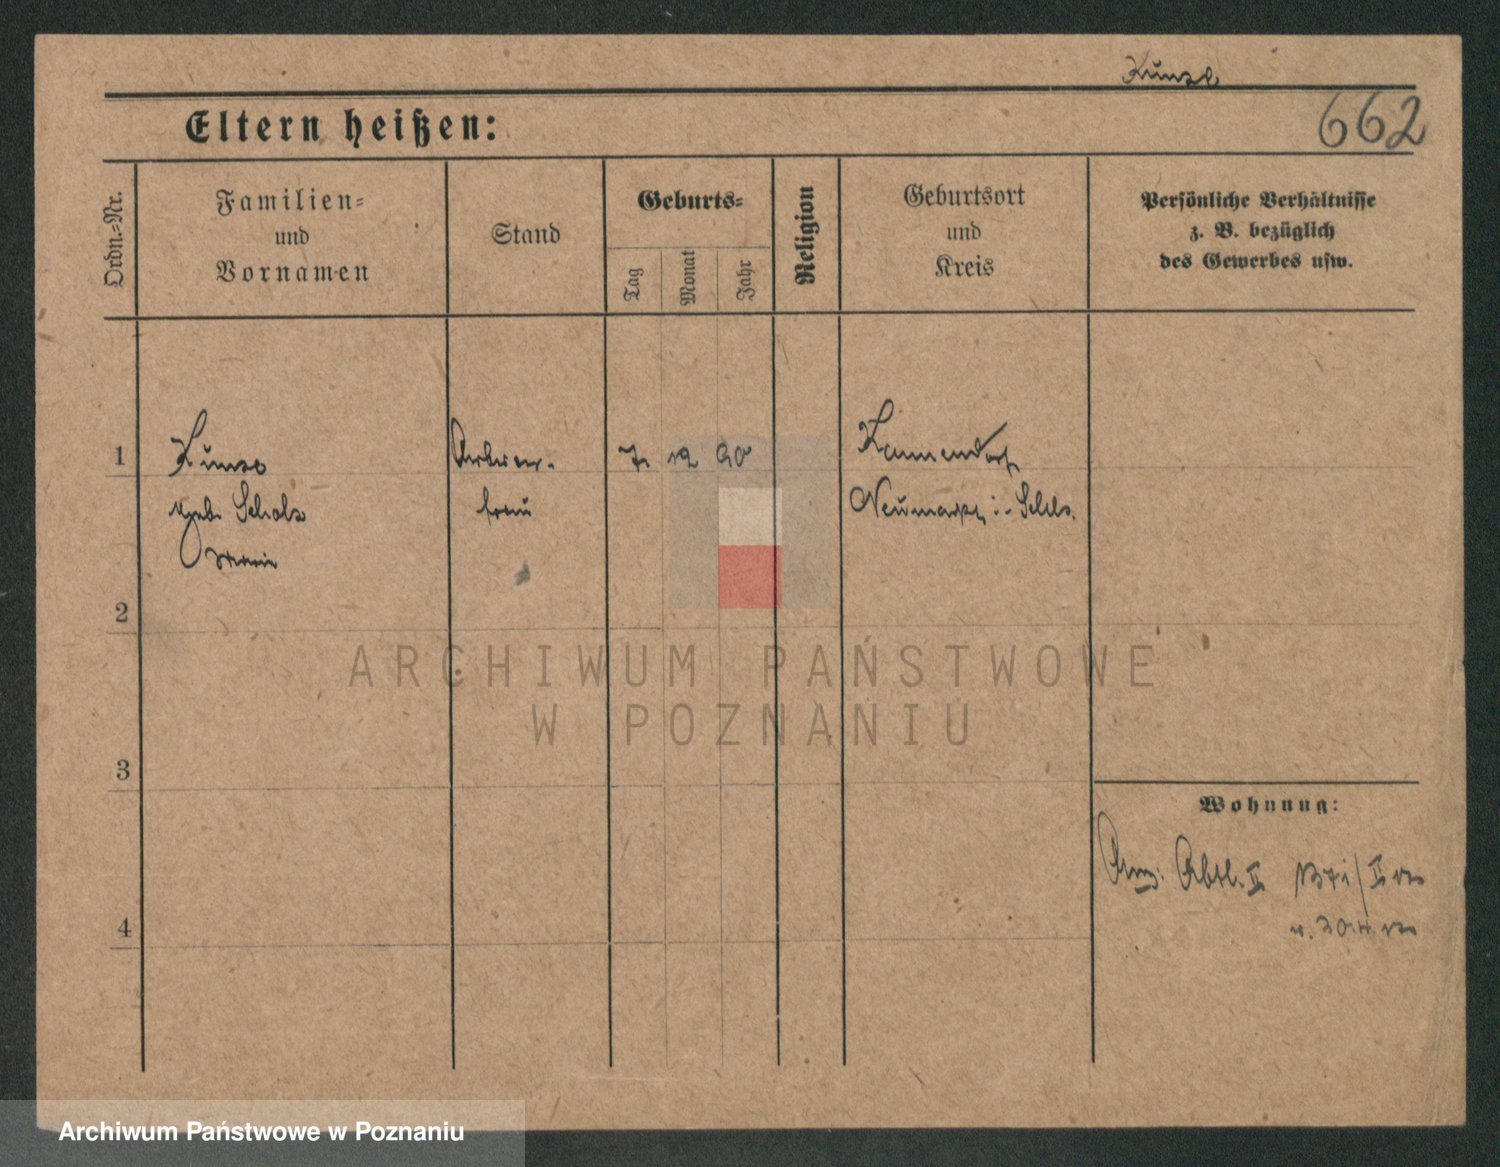 Kunze
662
Eltern heißen:
Ordn.-Nr.
Familien-
und
Vornamen
Stand
Geburts-
Tag
Monat
Jahr
Religion
Geburtsort
und
Kreis
Persönliche Verhältnisse
z. B. bezüglich
des Gewerbes usw.
1
Kunze
geb. Scholz
Marie
Arbeiter-
frau
7. 12 90
Kammendorf
Neumarkt i. Schles.
2
ARCHIWUM PAŃSTWOWE
W POZNANIU
3
Wohnung:
Abtl. II
4
Archiwum Państwowe w Poznaniu